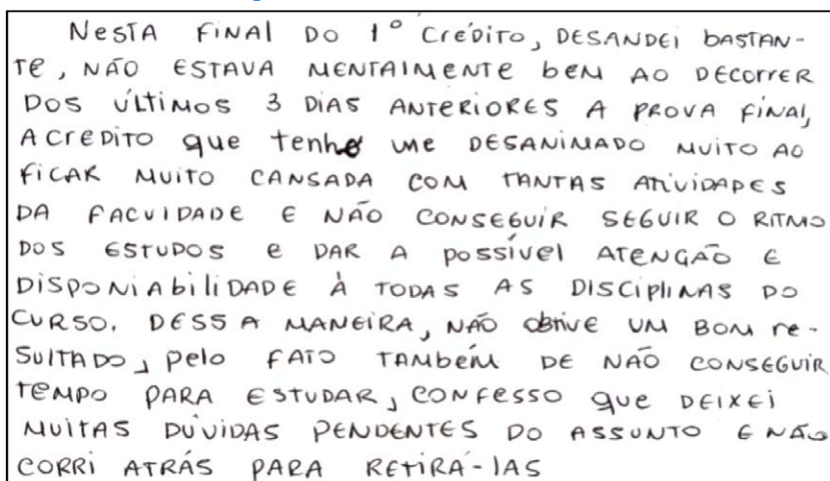 NESTA FINAL DO 1º CRÉDITO, DESANDEI BASTAN-
TE, NÃO ESTAVA MENTALMENTE BEM AO DECORRER
DOS ÚLTIMOS 3 DIAS ANTERIORES A PROVA FINAL,
ACREDITO que tenho me DESANIMADO MUITO AO
FICAR MUITO CANSADA COM TANTAS ATIVIDADES
DA FACULDADE E NÃO CONSEGUIR SEGUIR O RITMO
DOS ESTUDOS e DAR A possível ATENÇÃO E
DISPONIABILIDADE À TODAS AS DISCIPLINAS DO
CURSO. DESSA MANEIRA, NÃO OBTIVE UM BOM RE-
SULTADO, pelo FATO TAMBÉM DE NÃO CONSEGUIR
TEMPO PARA ESTUDAR, CONFESSO que DEIXEI
MUITAS DÚVIDAS PENDENTES DO ASSUNTO E NÃO
CORRI ATRÁS PARA RETIRÁ-LAS